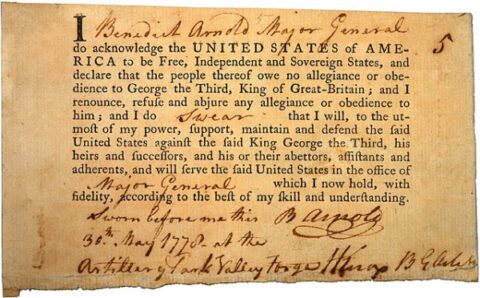 I Benedict Arnold Major General
do acknowledge the UNITED STATES of AME-
RICA to be Free, Independent and Sovereign States, and
declare that the people thereof owe no allegiance or obe-
dience to George the Third, King of Great-Britain; and I
renounce, refuse and abjure any allegiance or obedience to
him; and I do swear that I will, to the ut-
most of my power, support, maintain and defend the said
United States against the said King George the Third, his
heirs and successors, and his or their abettors, assistants and
adherents, and will serve the said United States in the office of
Major General which I now hold, with
fidelity, according to the best of my skill and understanding.
Sworn before me this B Arnold
30th May 1778 - at the
Artillery Park Valley Forge HKnox B G
5